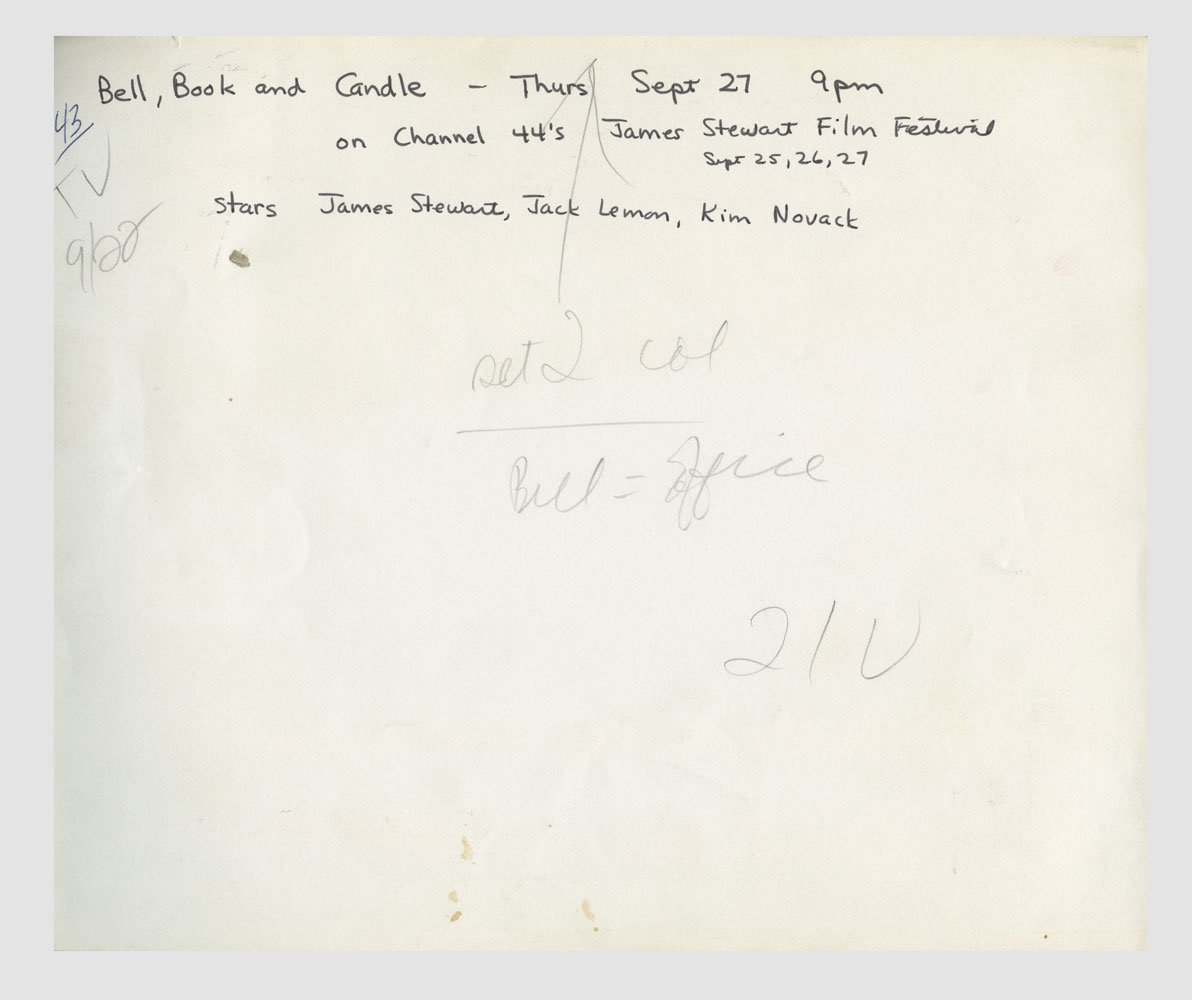 Bell, Book and Candle - Thurs Sept 27 9pm
43
on Channel 44's James Stewart Film Festival
Sept 25, 26, 27
TV
stars James Stewart, Jack Lemon, Kim Novack
9/22
set 2 col
Bell =
2/V